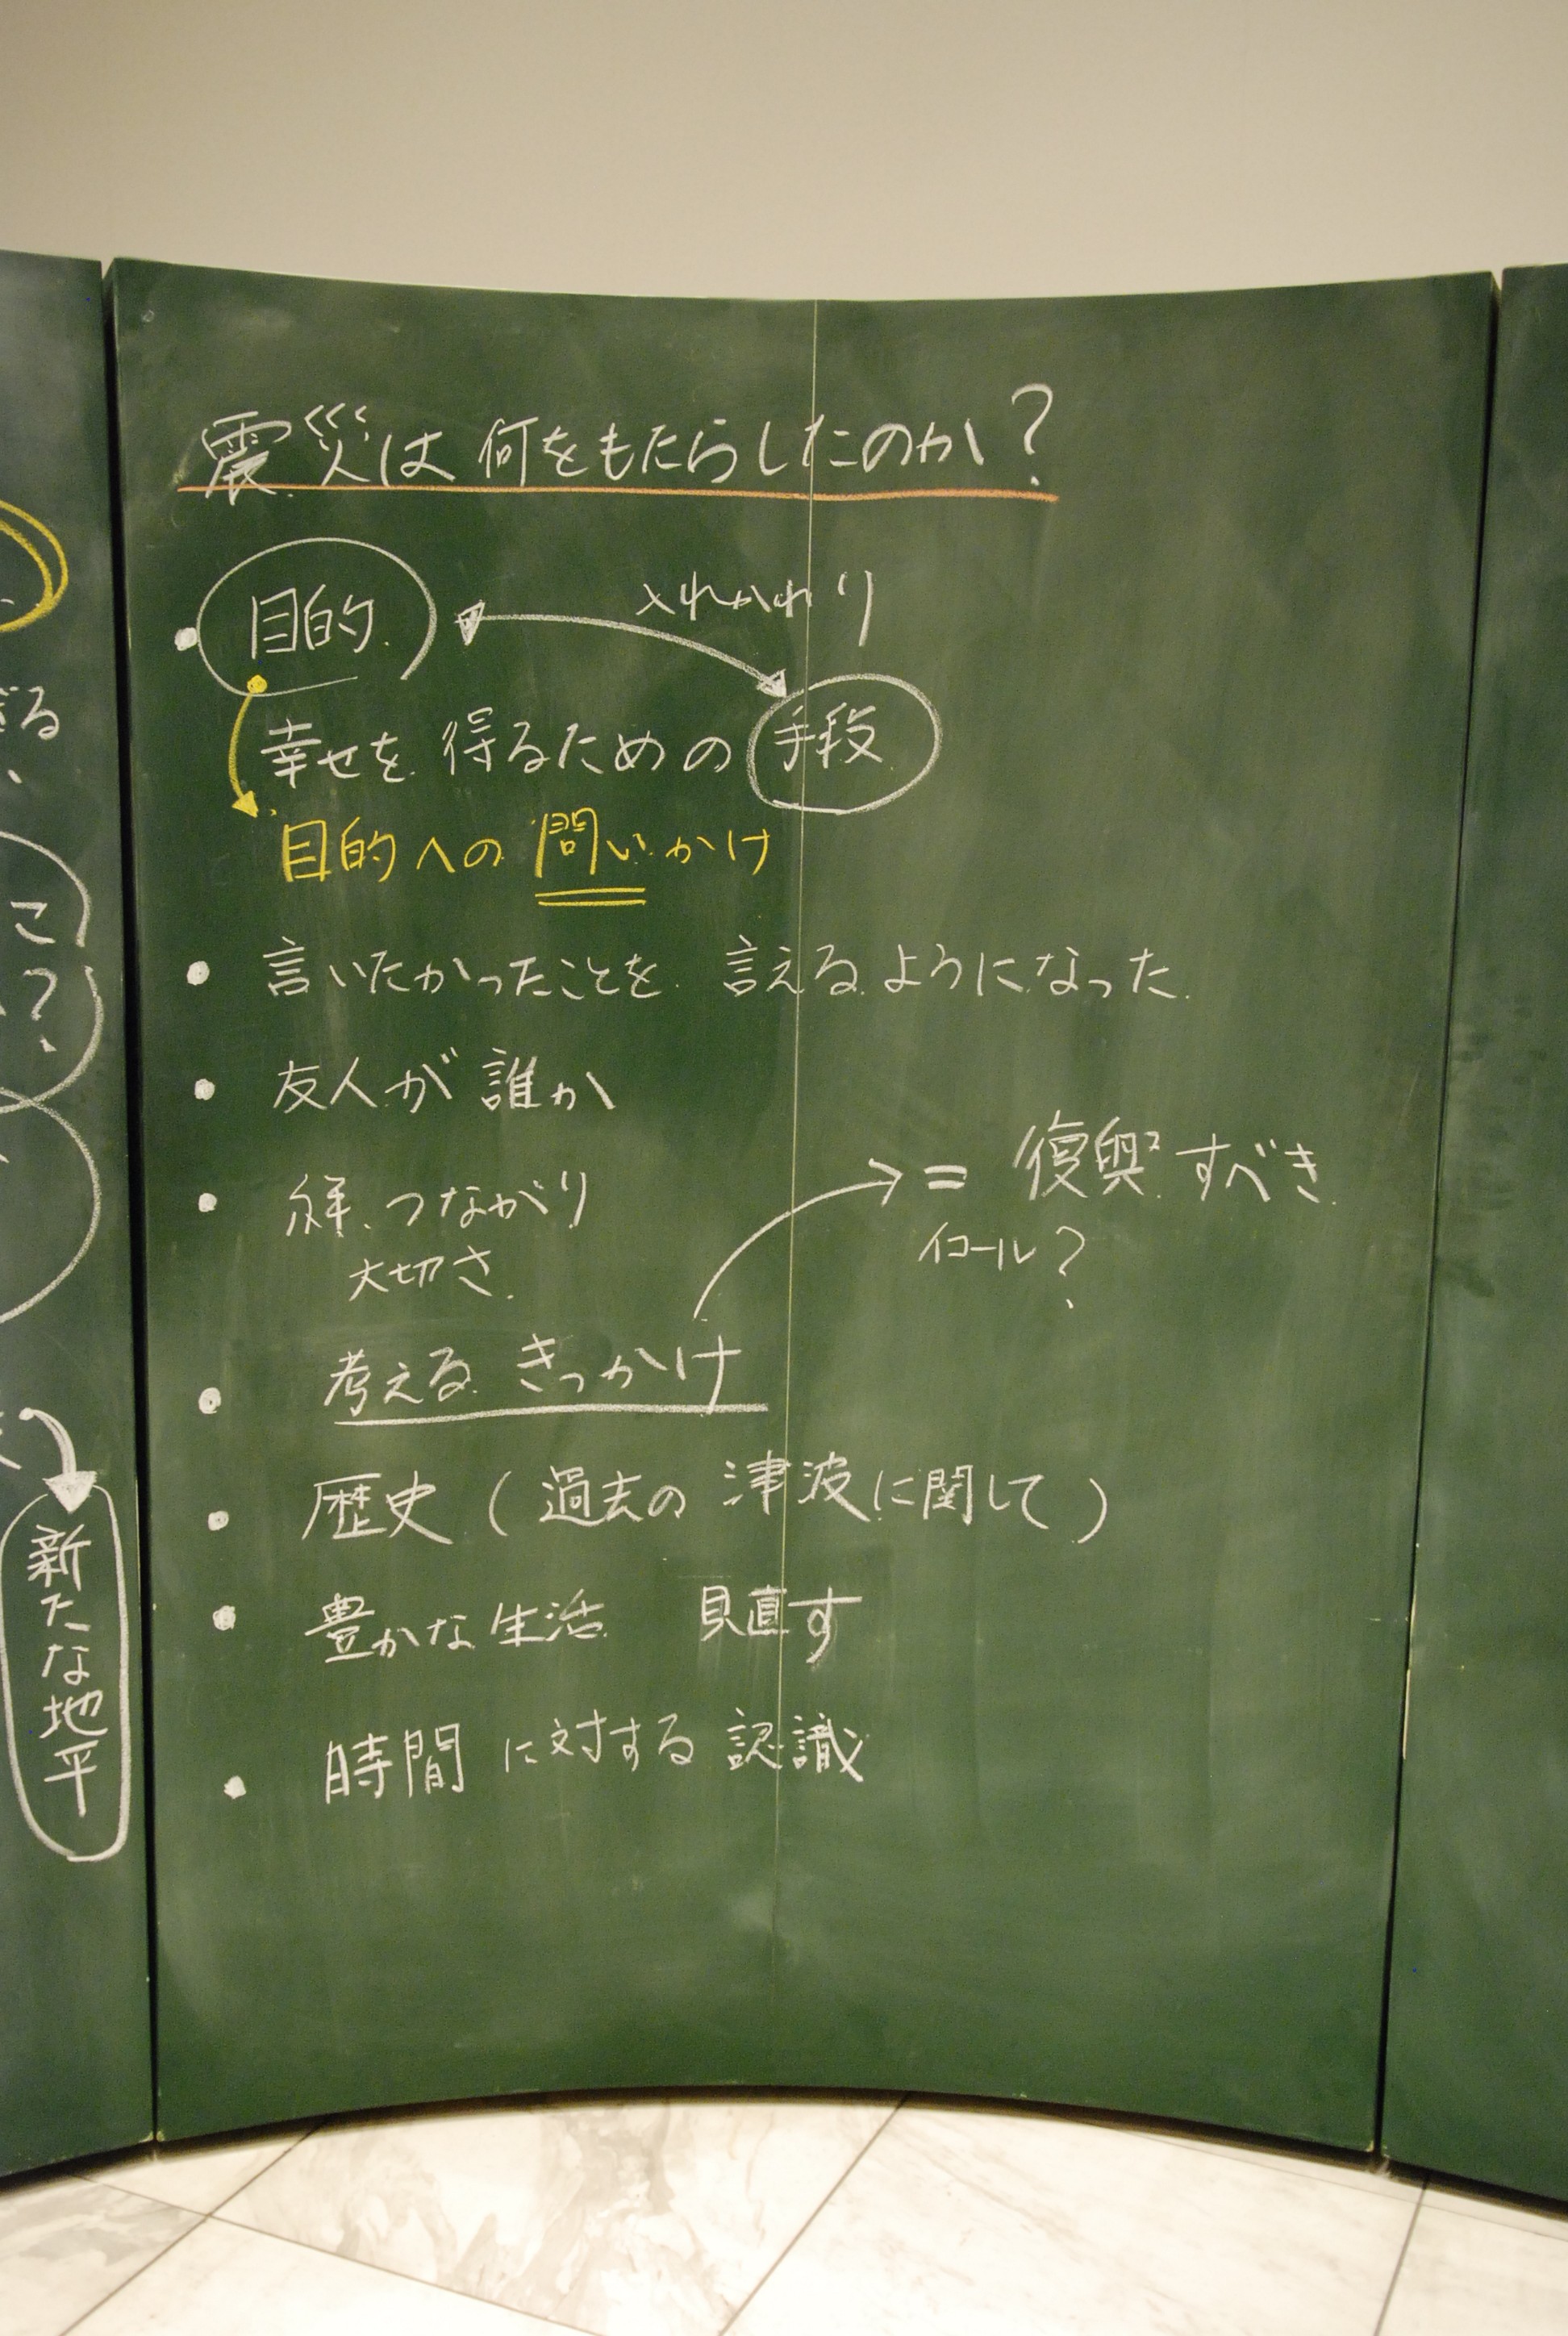 震災は何をもたらしたのか?
・目的
入れかわり
幸せを得るための手段
目的への問いかけ
・言いたかったことを 言えるようになった
・友人が誰か
・絆、つながり
大切さ
= 復興すべき
イコール?
・考えるきっかけ
・歴史(過去の津波に関して)
・豊かな生活 見直す
・時間に対する認識
る
こ
?
新たな地平